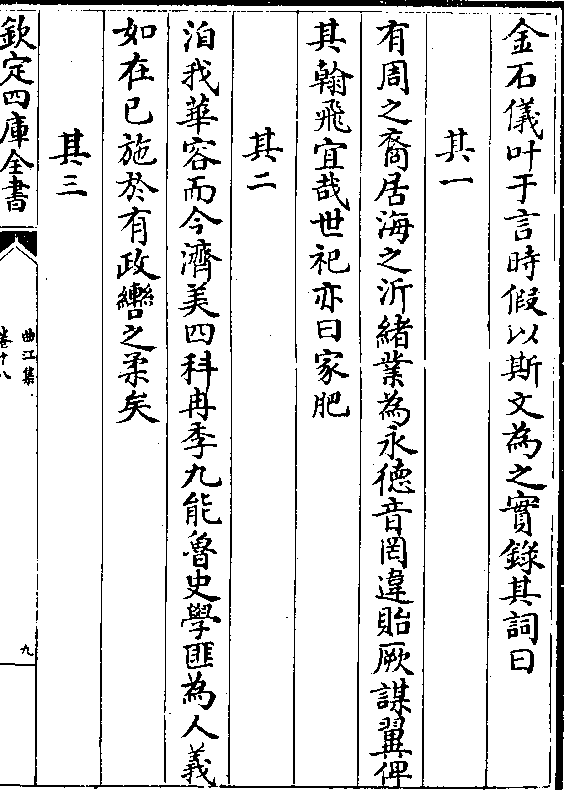 金石儀叶于言時假以斯文為之實錄其詞曰
其一
有周之裔居海之沂緒業為永德音罔違貽厥謀翼俾
其翰飛宜哉世祀亦曰家肥
其二
洎我華容而今濟美四科冉季九能魯史學匪為人義
如在已施於有政轡之柔矣
其三
欽定四庫全書
曲江集
卷十八
九